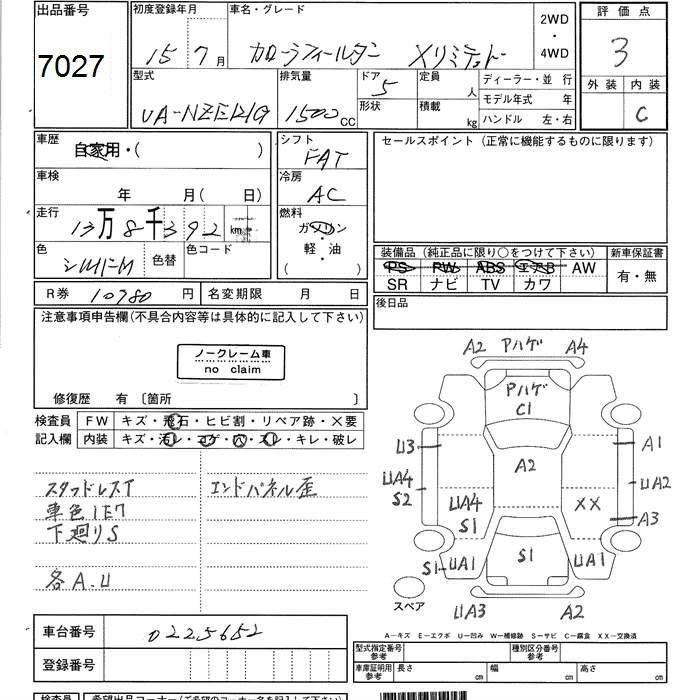 出品番号 初度登録年月 車名・グレード 2WD ・ 4WD 評価点
7027 15 7月 カローラフィールダー Xリミテッド 3
型式 排気量 ドア 5 定員 人 ディーラー・並 行 外装 内装
UA-NZE121G 1500cc 形状 積載 kg モデル年式 年 C
ハンドル 左・右
車歴 自家用・( ) シフト FAT セールスポイント（正常に機能するものに限ります）
車検 年 月( 日) 冷房 AC
走行 13万8千392 km 燃料 ガソリン
・
軽・油
( )
色 シルバーM 色替 色コード
装備品（純正品に限り○をつけて下さい） 新車保証書
PS PW ABS エアB AW 有・無
SR ナビ TV カワ
R券 10780円 名変期限 月 日 後日品
注意事項申告欄(不具合内容等は具体的に記入して下さい)
ノークレーム車
no claim
修復歴 有〔箇所 〕
検査員 FW キズ・飛石・ヒビ割・リペア跡・×要
記入欄 内装 キズ・汚レ・コゲ・穴・スレ・キレ・破レ
スタッドレスT エンドパネル歪
車色1E7
下廻りS
各A.U
A2 Pハゲ A4
Pハゲ
C1
U3 A2 A1
UA4 UA2
S2 UA4 XX
S1 A3
S1 UA1 S1 UA1
スペア UA3 A2
A－キズ E－エクボ U－凹み W－補修跡 S－サビ C－腐食 XX－交換済
車台番号 0225652
登録番号
型式指定番号 参考 種別区分番号 参考
車庫証明用 参考 長さ cm 幅 cm 高さ cm
検査員 希望出品コーナー(ご希望のコーナー名を記入して下さい)